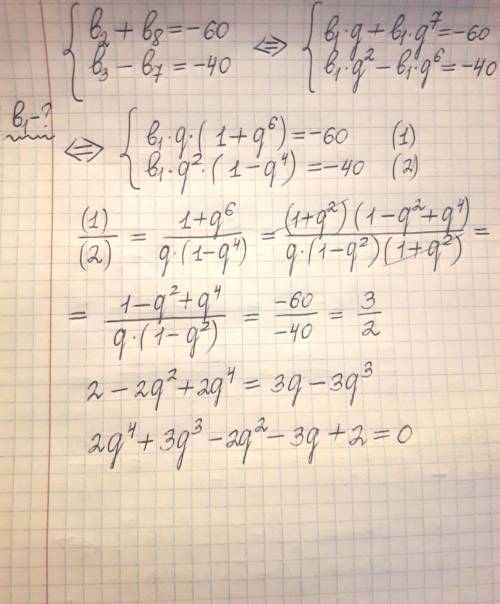 { b₂ + b₈ = -60 <=> { b₁·q + b₁·q⁷ = -60
{ b₃ - b₇ = -40 { b₁·q² - b₁·q⁶ = -40
b₁-?
<=> { b₁·q·(1+q⁶) = -60 (1)
{ b₁·q²·(1-q⁴) = -40 (2)
(1)/(2) = (1+q⁶)/(q·(1-q⁴)) = ((1+q²)(1-q²+q⁴))/(q·(1-q²)(1+q²)) =
= (1-q²+q⁴)/(q·(1-q²)) = -60/-40 = 3/2
2 - 2q² + 2q⁴ = 3q - 3q³
2q⁴ + 3q³ - 2q² - 3q + 2 = 0